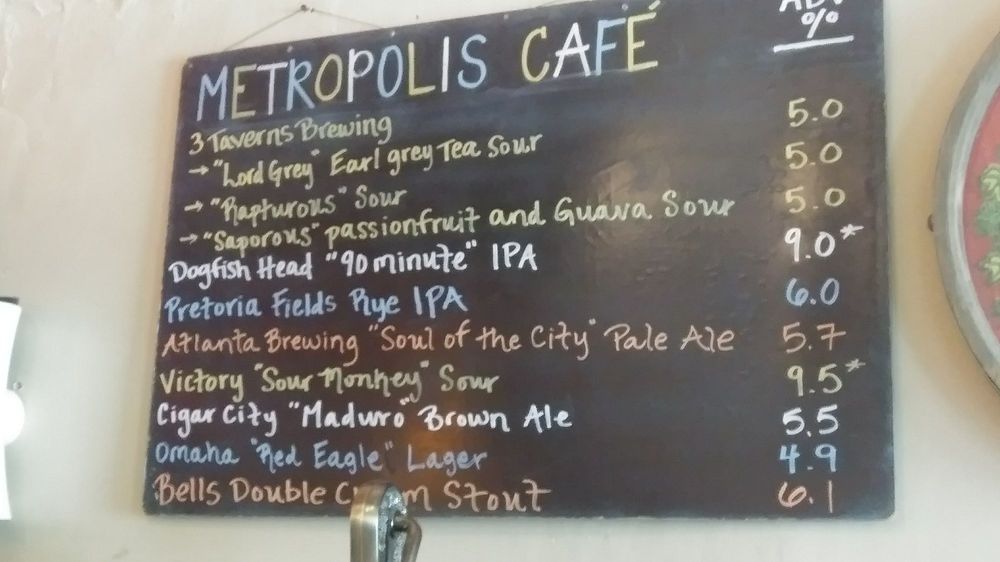 METROPOLIS CAFÉ
%
3 Taverns Brewing
→ "Lord Grey" Earl grey Tea Sour 5.0
→ "Rapturous" Sour 5.0
→ "Saporous" passionfruit and Guava Sour 5.0
Dogfish Head "90 minute" IPA 9.0*
Pretoria Fields Rye IPA 6.0
Atlanta Brewing "Soul of the City" Pale Ale 5.7
Victory "Sour Monkey" Sour 9.5*
Cigar City "Maduro" Brown Ale 5.5
Omaha "Red Eagle" Lager 4.9
Bells Double Stout 6.1